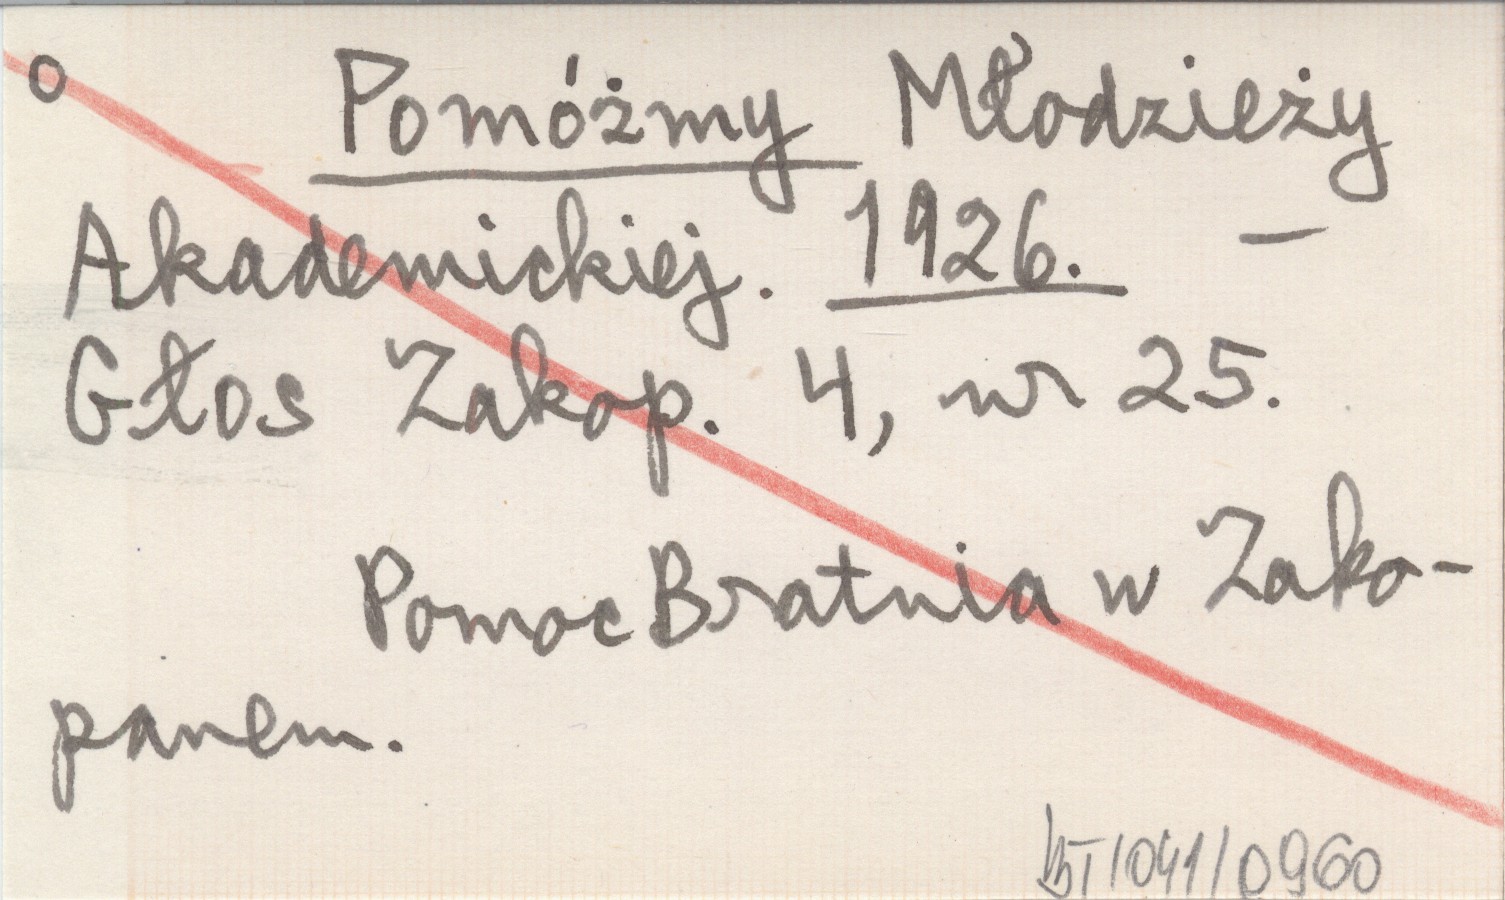 o Pomóżmy Młodzieży
Akademickiej. 1926. —
Głos Zakop. 4, nr 25.
Pomoc Bratnia w Zako-
panem.
BT/041/0960